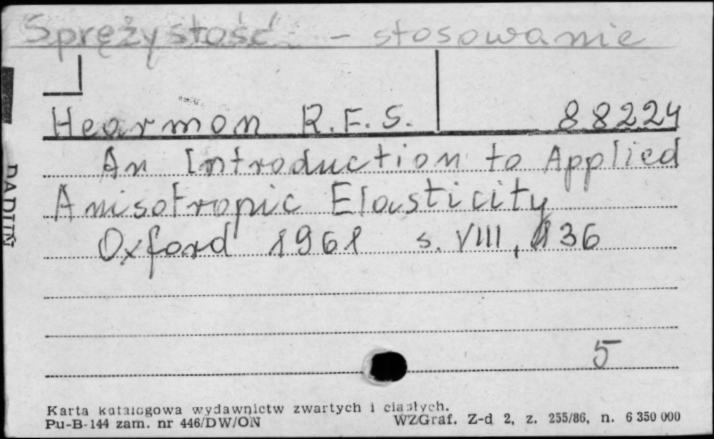 Sprężystość - stosowanie
Hearmon R.F.S. 88224
An Introduction to Applied
Anisotropic Elasticity
Oxford 1961 s. VIII, 136
5
Karta katalogowa wydawnictw zwartych i ciągłych.
Pu-B-144 zam. nr 446/DW/ON WZGraf. Z-d 2, z. 255/86, n. 6 350 000